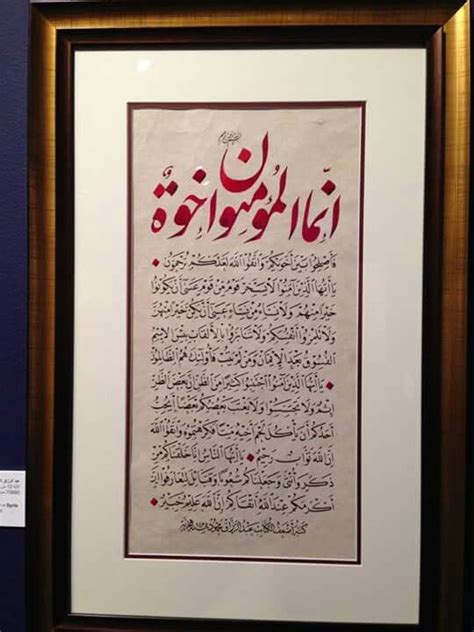 إنما المؤمنون إخوة
فَأَصْلِحُوا بَيْنَ أَخَوَيْكُمْ وَاتَّقُوا اللَّهَ لَعَلَّكُمْ تُرْحَمُونَ
يَا أَيُّهَا الَّذِينَ آمَنُوا لَا يَسْخَرْ قَوْمٌ مِنْ قَوْمٍ عَسَى أَنْ يَكُونُوا
خَيْرًا مِنْهُمْ وَلَا نِسَاءٌ مِنْ نِسَاءٍ عَسَى أَنْ يَكُنَّ خَيْرًا مِنْهُنَّ
وَلَا تَلْمِزُوا أَنْفُسَكُمْ وَلَا تَنَابَزُوا بِالْأَلْقَابِ بِئْسَ الِاسْمُ
الْفُسُوقُ بَعْدَ الْإِيمَانِ وَمَنْ لَمْ يَتُبْ فَأُولَئِكَ هُمُ الظَّالِمُونَ
يَا أَيُّهَا الَّذِينَ آمَنُوا اجْتَنِبُوا كَثِيرًا مِنَ الظَّنِّ إِنَّ بَعْضَ الظَّنِّ
إِثْمٌ وَلَا تَجَسَّسُوا وَلَا يَغْتَبْ بَعْضُكُمْ بَعْضًا أَيُحِبُّ
أَحَدُكُمْ أَنْ يَأْكُلَ لَحْمَ أَخِيهِ مَيْتًا فَكَرِهْتُمُوهُ وَاتَّقُوا اللَّهَ
إِنَّ اللَّهَ تَوَّابٌ رَحِيمٌ يَا أَيُّهَا النَّاسُ إِنَّا خَلَقْنَاكُمْ مِنْ
ذَكَرٍ وَأُنْثَى وَجَعَلْنَاكُمْ شُعُوبًا وَقَبَائِلَ لِتَعَارَفُوا إِنَّ
أَكْرَمَكُمْ عِنْدَ اللَّهِ أَتْقَاكُمْ إِنَّ اللَّهَ عَلِيمٌ خَبِيرٌ
كتبه أضعف الكتاب عبد الرزاق محمود
Syria